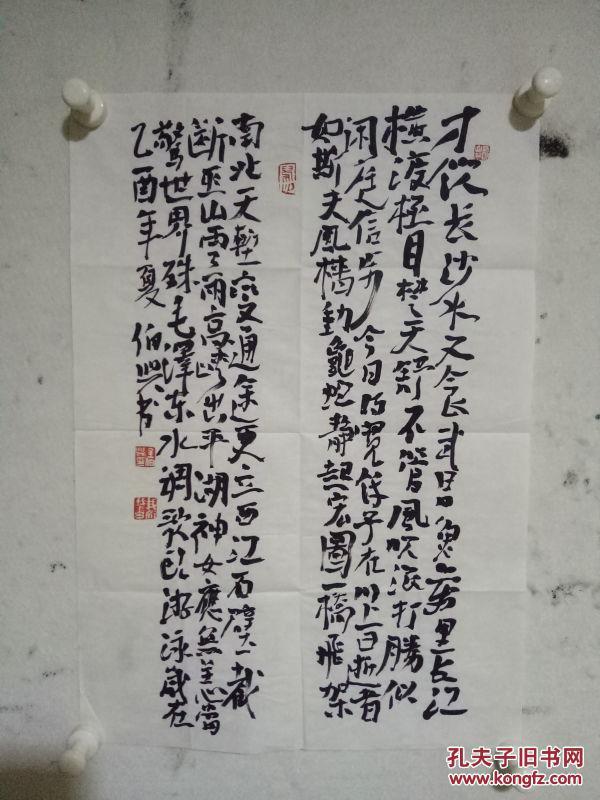 才饮长沙水又食武昌鱼萬里长江
横渡極目楚天舒不管風吹浪打勝似
闲庭信步今日得宽馀子在川上曰逝者
如斯夫風樯動龜蛇静起宏圖一橋飛架
南北天塹变通途更立西江石壁截
断巫山雲雨高峡出平湖神女應無恙當
驚世界殊毛澤东水調歌头游泳歲在
乙酉年夏 书
孔夫子旧书网
www.kongfz.com